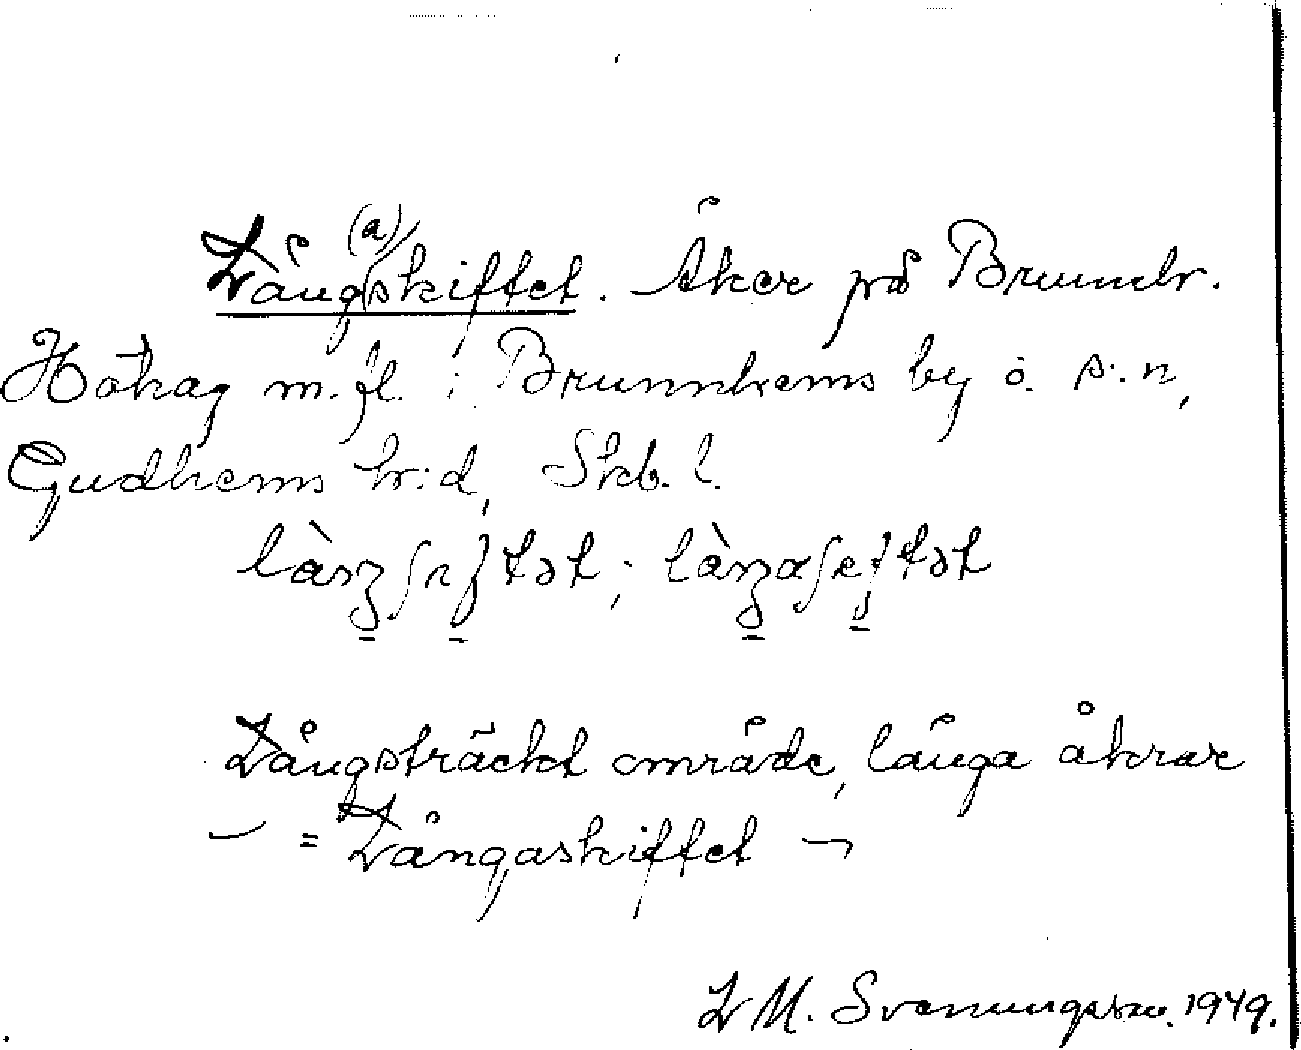 Lång(a)skiftet. Åker på Brunnh.
Hökag m.fl. i Brunnhems by o. s:n,
Gudhems h:d, Skb. l.
Långsträckt område, långa åkrar
= Långaskiftet
L M. Svenungsson. 1949.